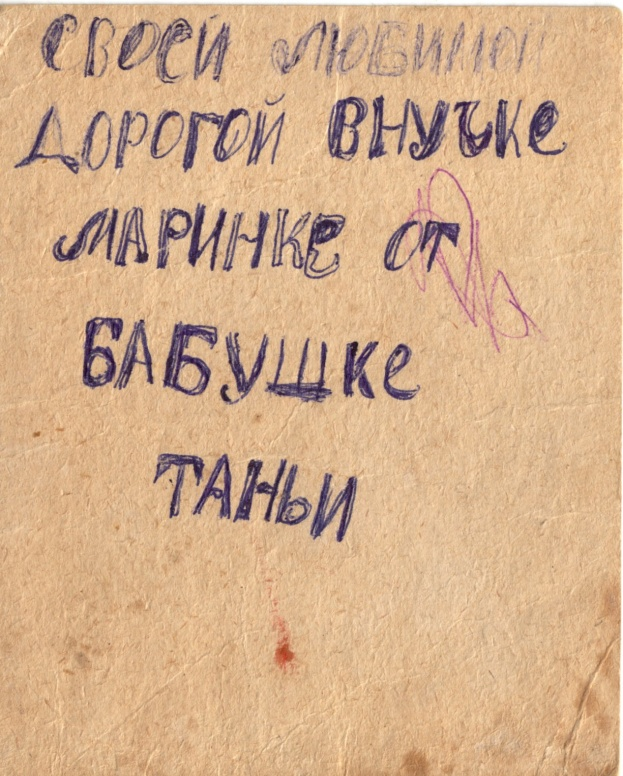 СВОЕЙ ЛЮБИМОЙ
ДОРОГОЙ ВНУЧКЕ
МАРИНКЕ ОТ
БАБУШКЕ
ТАНЬИ